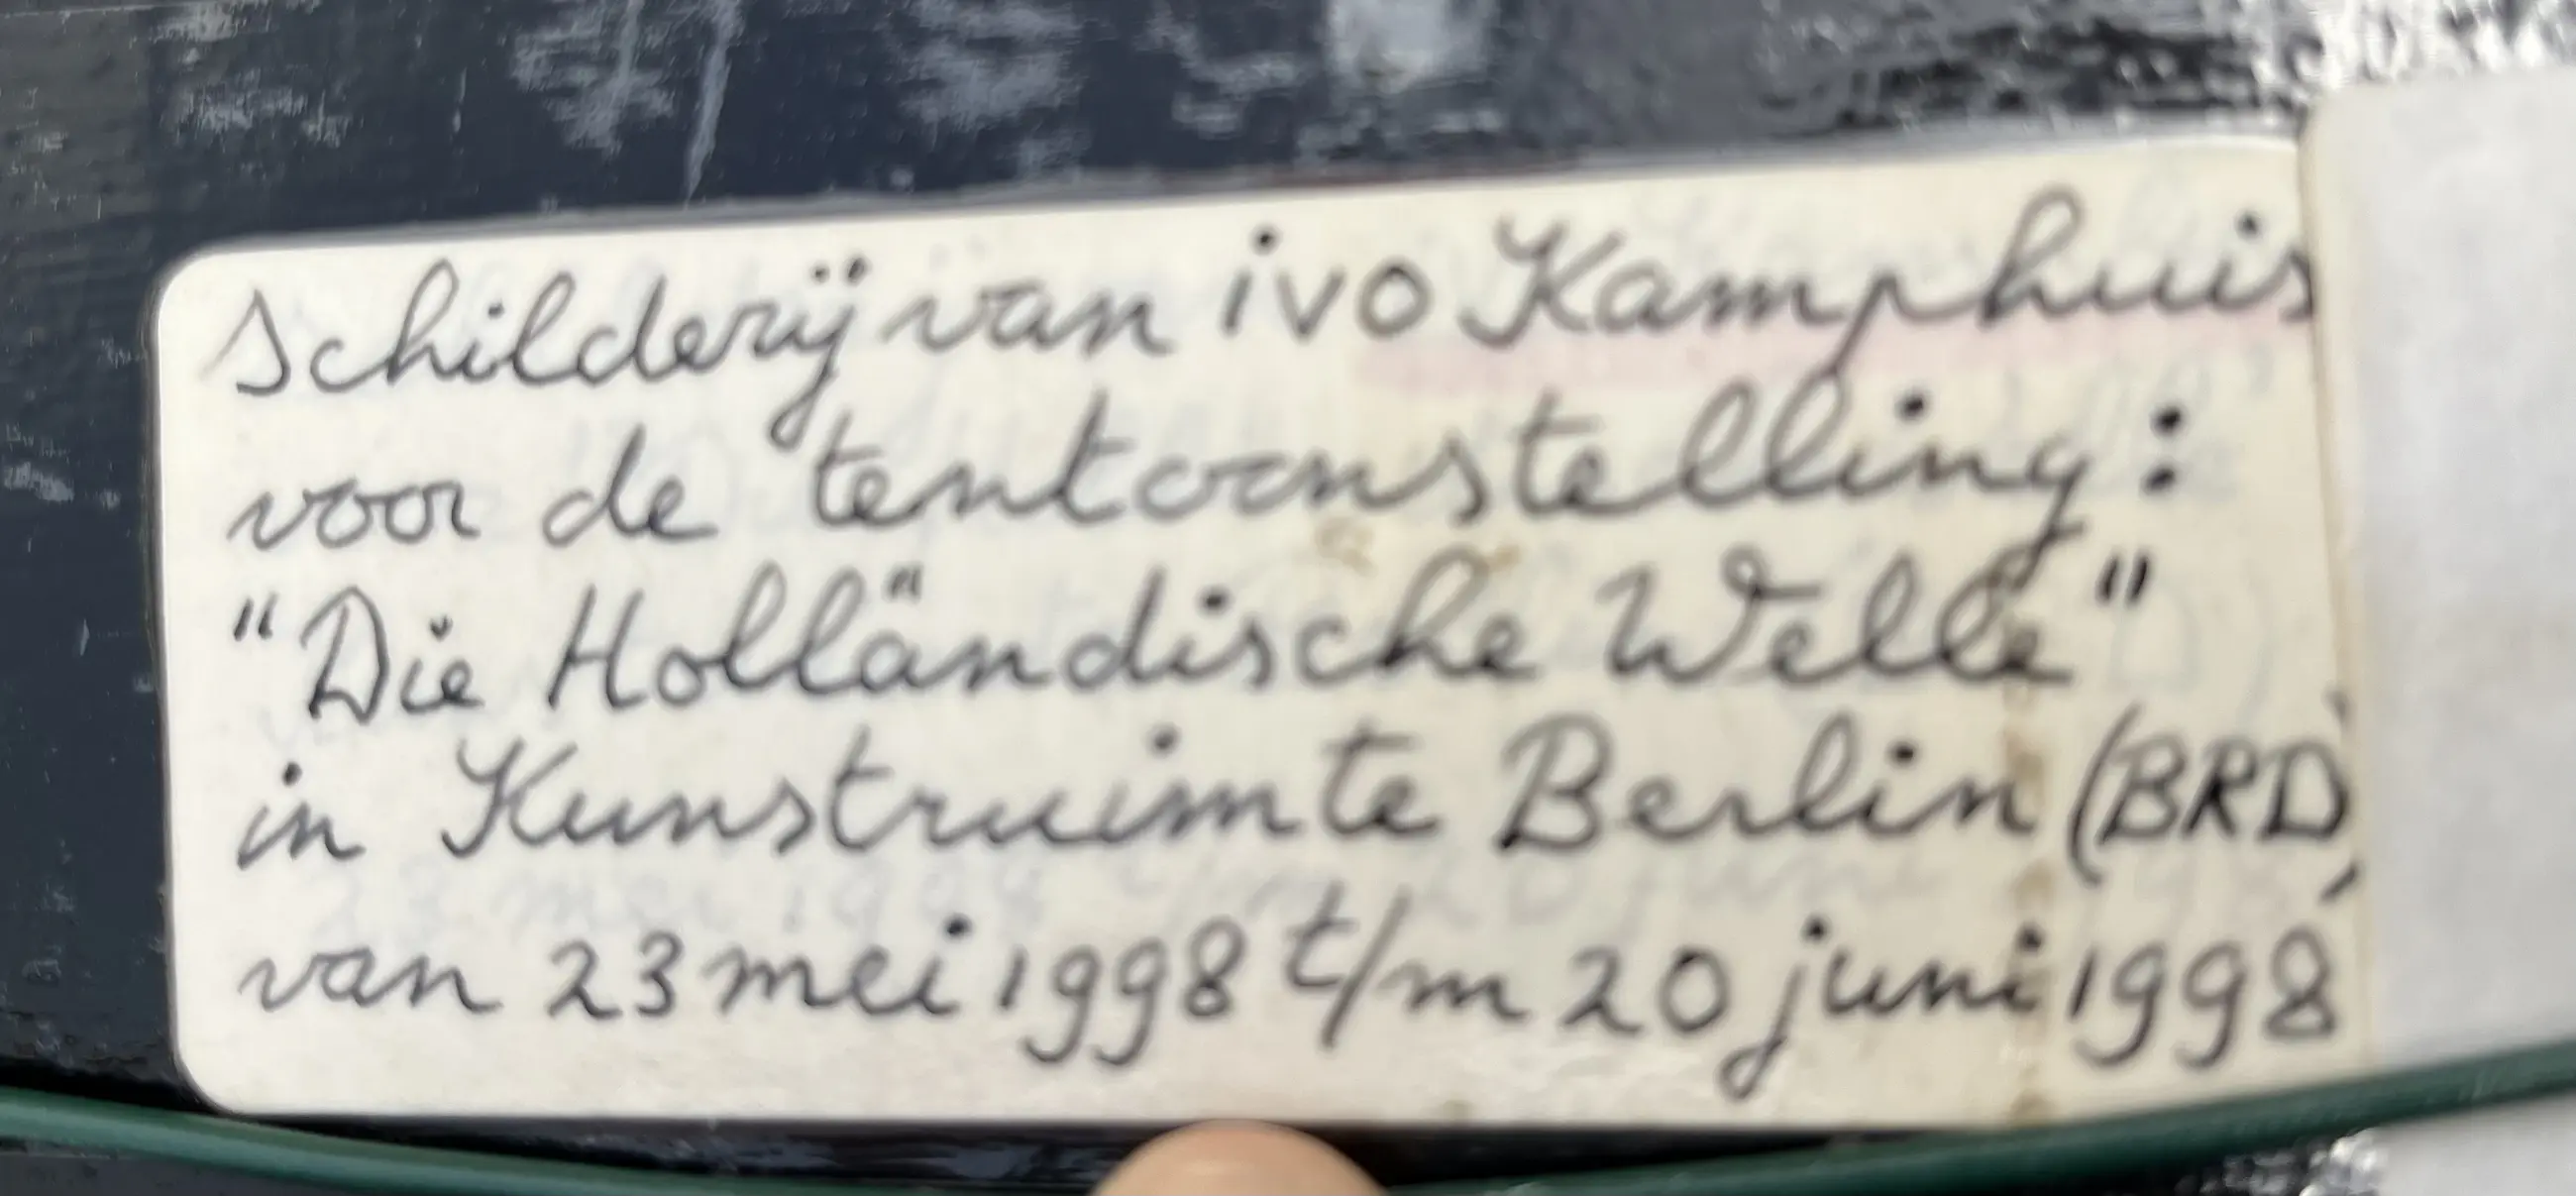 Schilderij van ivo Kamphuis
voor de tentoonstelling:
"Die Holländische Welle"
in Kunstruimte Berlin (BRD)
van 23 mei 1998 t/m 20 juni 1998